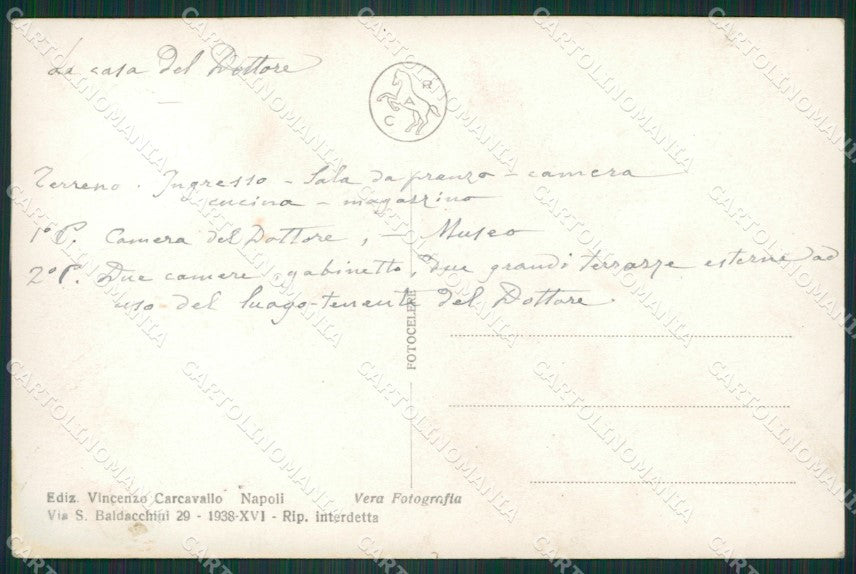 La casa del Dottore
C A R
Terreno. Ingresso - Sala da pranzo - camera
cucina - magazzino
1° P. Camera del Dottore, - Museo
2° P. Due camere, gabinetto, due grandi terrazze esterne ad
uso del luogo-tenente del Dottore.
FOTOCELERE
Ediz. Vincenzo Carcavallo Napoli Vera Fotografia
Via S. Baldacchini 29 - 1938-XVI - Rip. interdetta
CARTOLINOMANIA